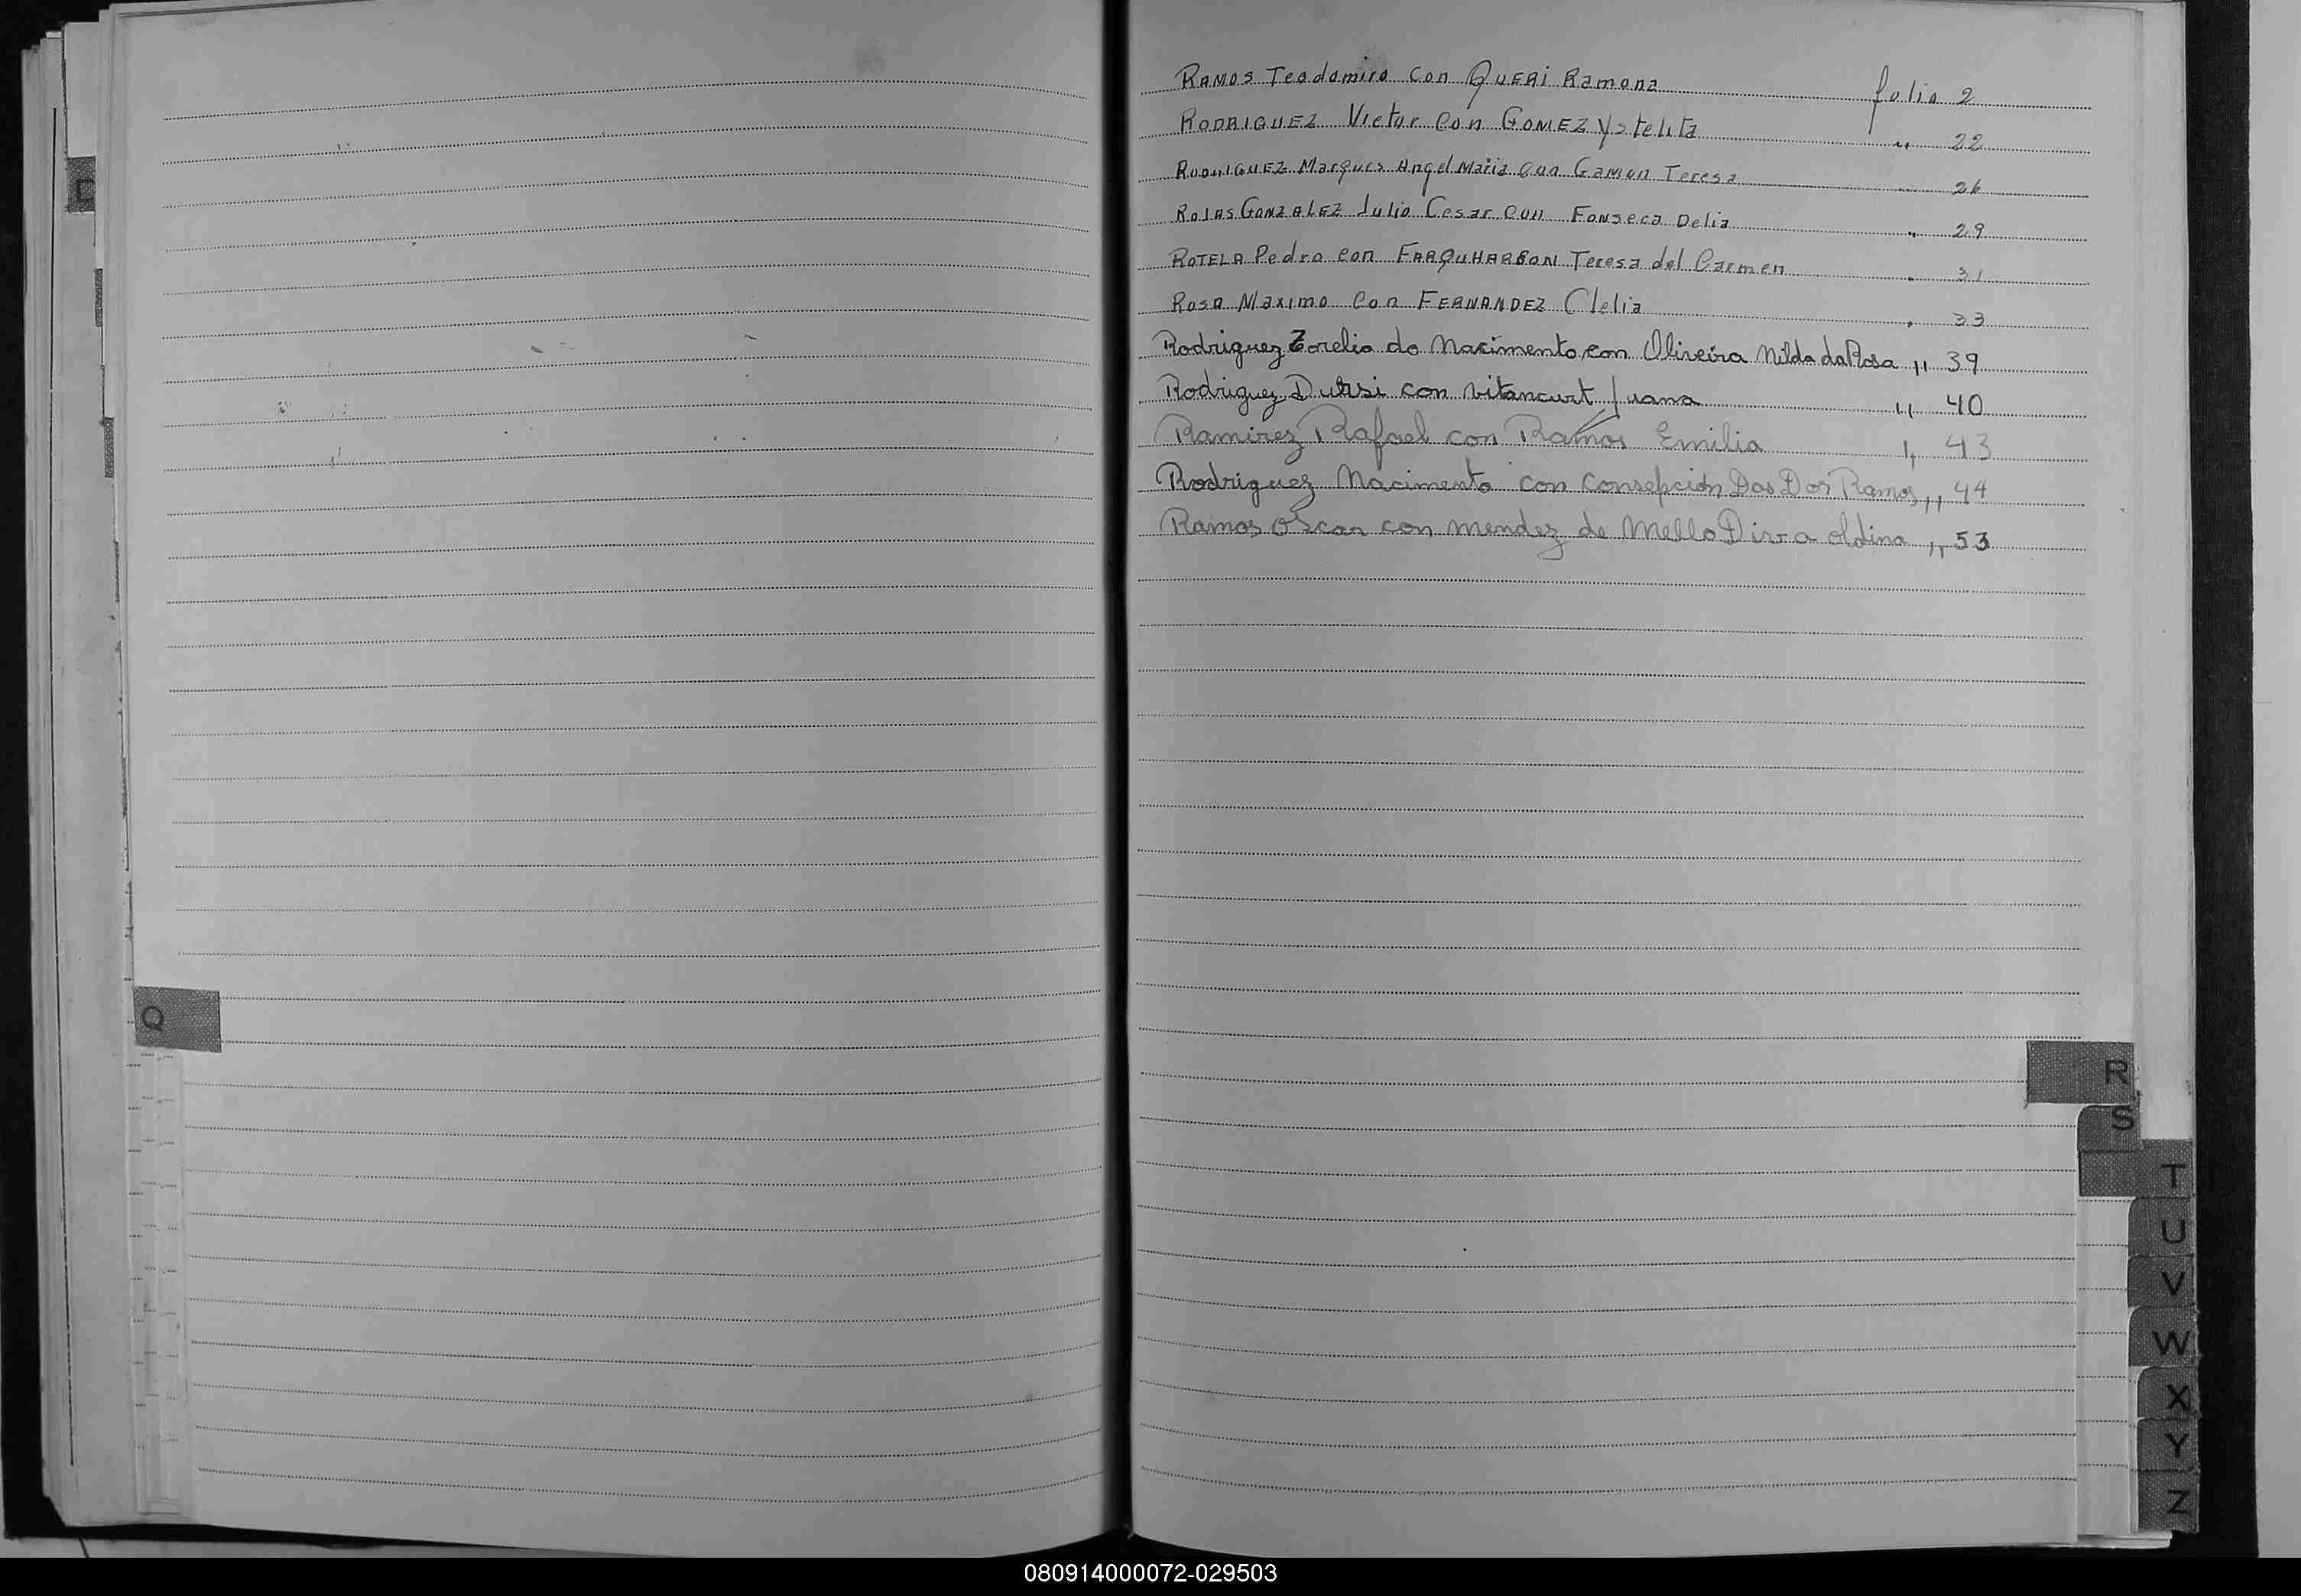 RAMOS Teodomiro con QUERI Ramona folio 2
RODRIGUEZ Victor con GOMEZ Ystelita " 22
RODRIGUEZ Marques Angel Maria con Gamon Teresa " 26
ROJAS GONZALEZ Julio Cesar con Fonseca Delia " 29
ROTELA Pedro con FARQUHARSON Teresa del Carmen " 31
ROSA Maximo con FERNANDEZ Clelia " 33
Rodriguez Zorelio do Nacimento con Oliveira Nilda da Rosa ,, 39
Rodriguez Dursi con Vitancurt Juana ,, 40
Ramirez Rafael con Ramos Emilia ,, 43
Rodriguez Nacimento con Consepción Das Dor Ramos ,, 44
Ramos Oscar con mendez de Mello Dirva oldina ,, 53
D
Q
R
S
T
U
V
W
X
Y
Z
080914000072-029503